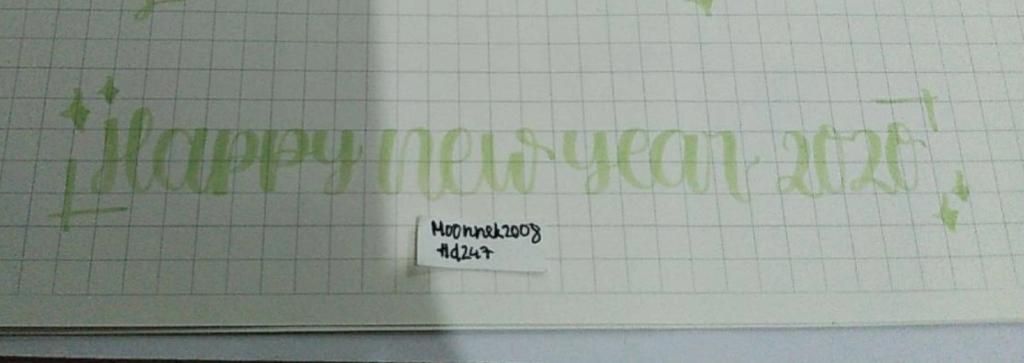 Happy new year 2020
Moonnek2008
#d247